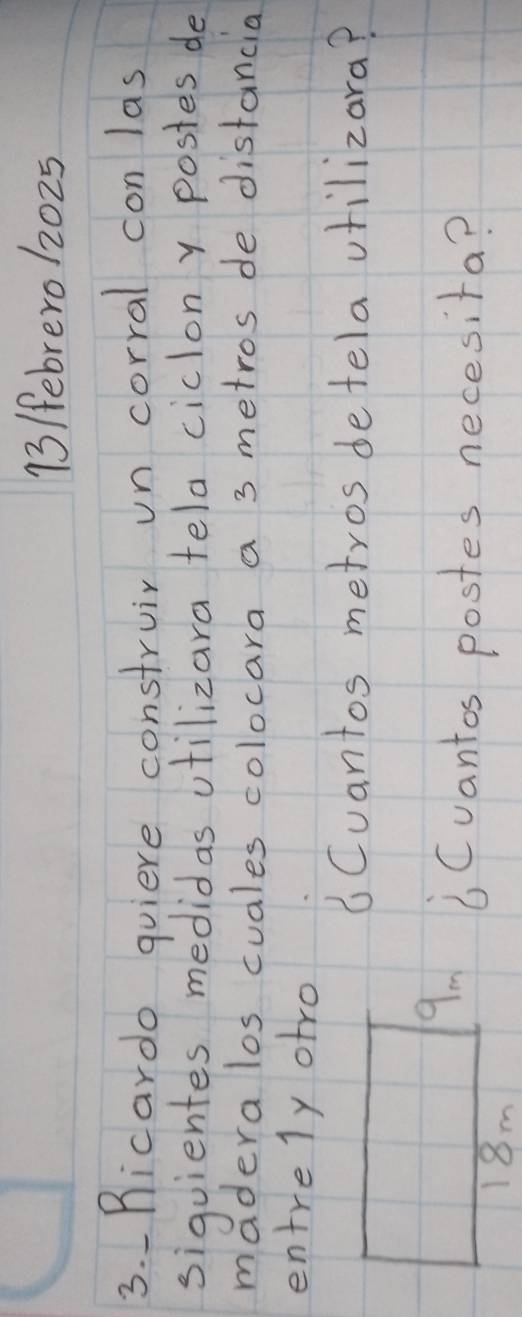 13/febrero/2025
3.- Ricardo quiere construir un corral con las
siguientes medidas utilizara tela ciclon y postes de
madera los cuales colocara a 3 metros de distancia
entre 1 y otro
¿Cuantos metros de tela utilizara?
9m ¿Cuantos postes necesita?
18m